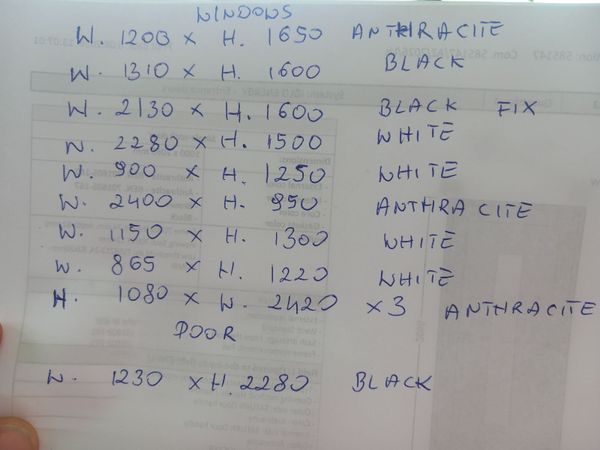 WINDOWS
W. 1200 x H. 1650 ANTHRACITE
W. 1310 x H. 1600 BLACK
W. 2130 x H. 1600 BLACK FIX
W. 2280 x H. 1500 WHITE
W. 900 x H. 1250 WHITE
W. 2400 x H. 950 ANTHRACITE
W. 1150 x H. 1300 WHITE
W. 865 x H. 1220 WHITE
H. 1080 x W. 2420 x 3 ANTHRACITE
DOOR
W. 1230 x H. 2280 BLACK